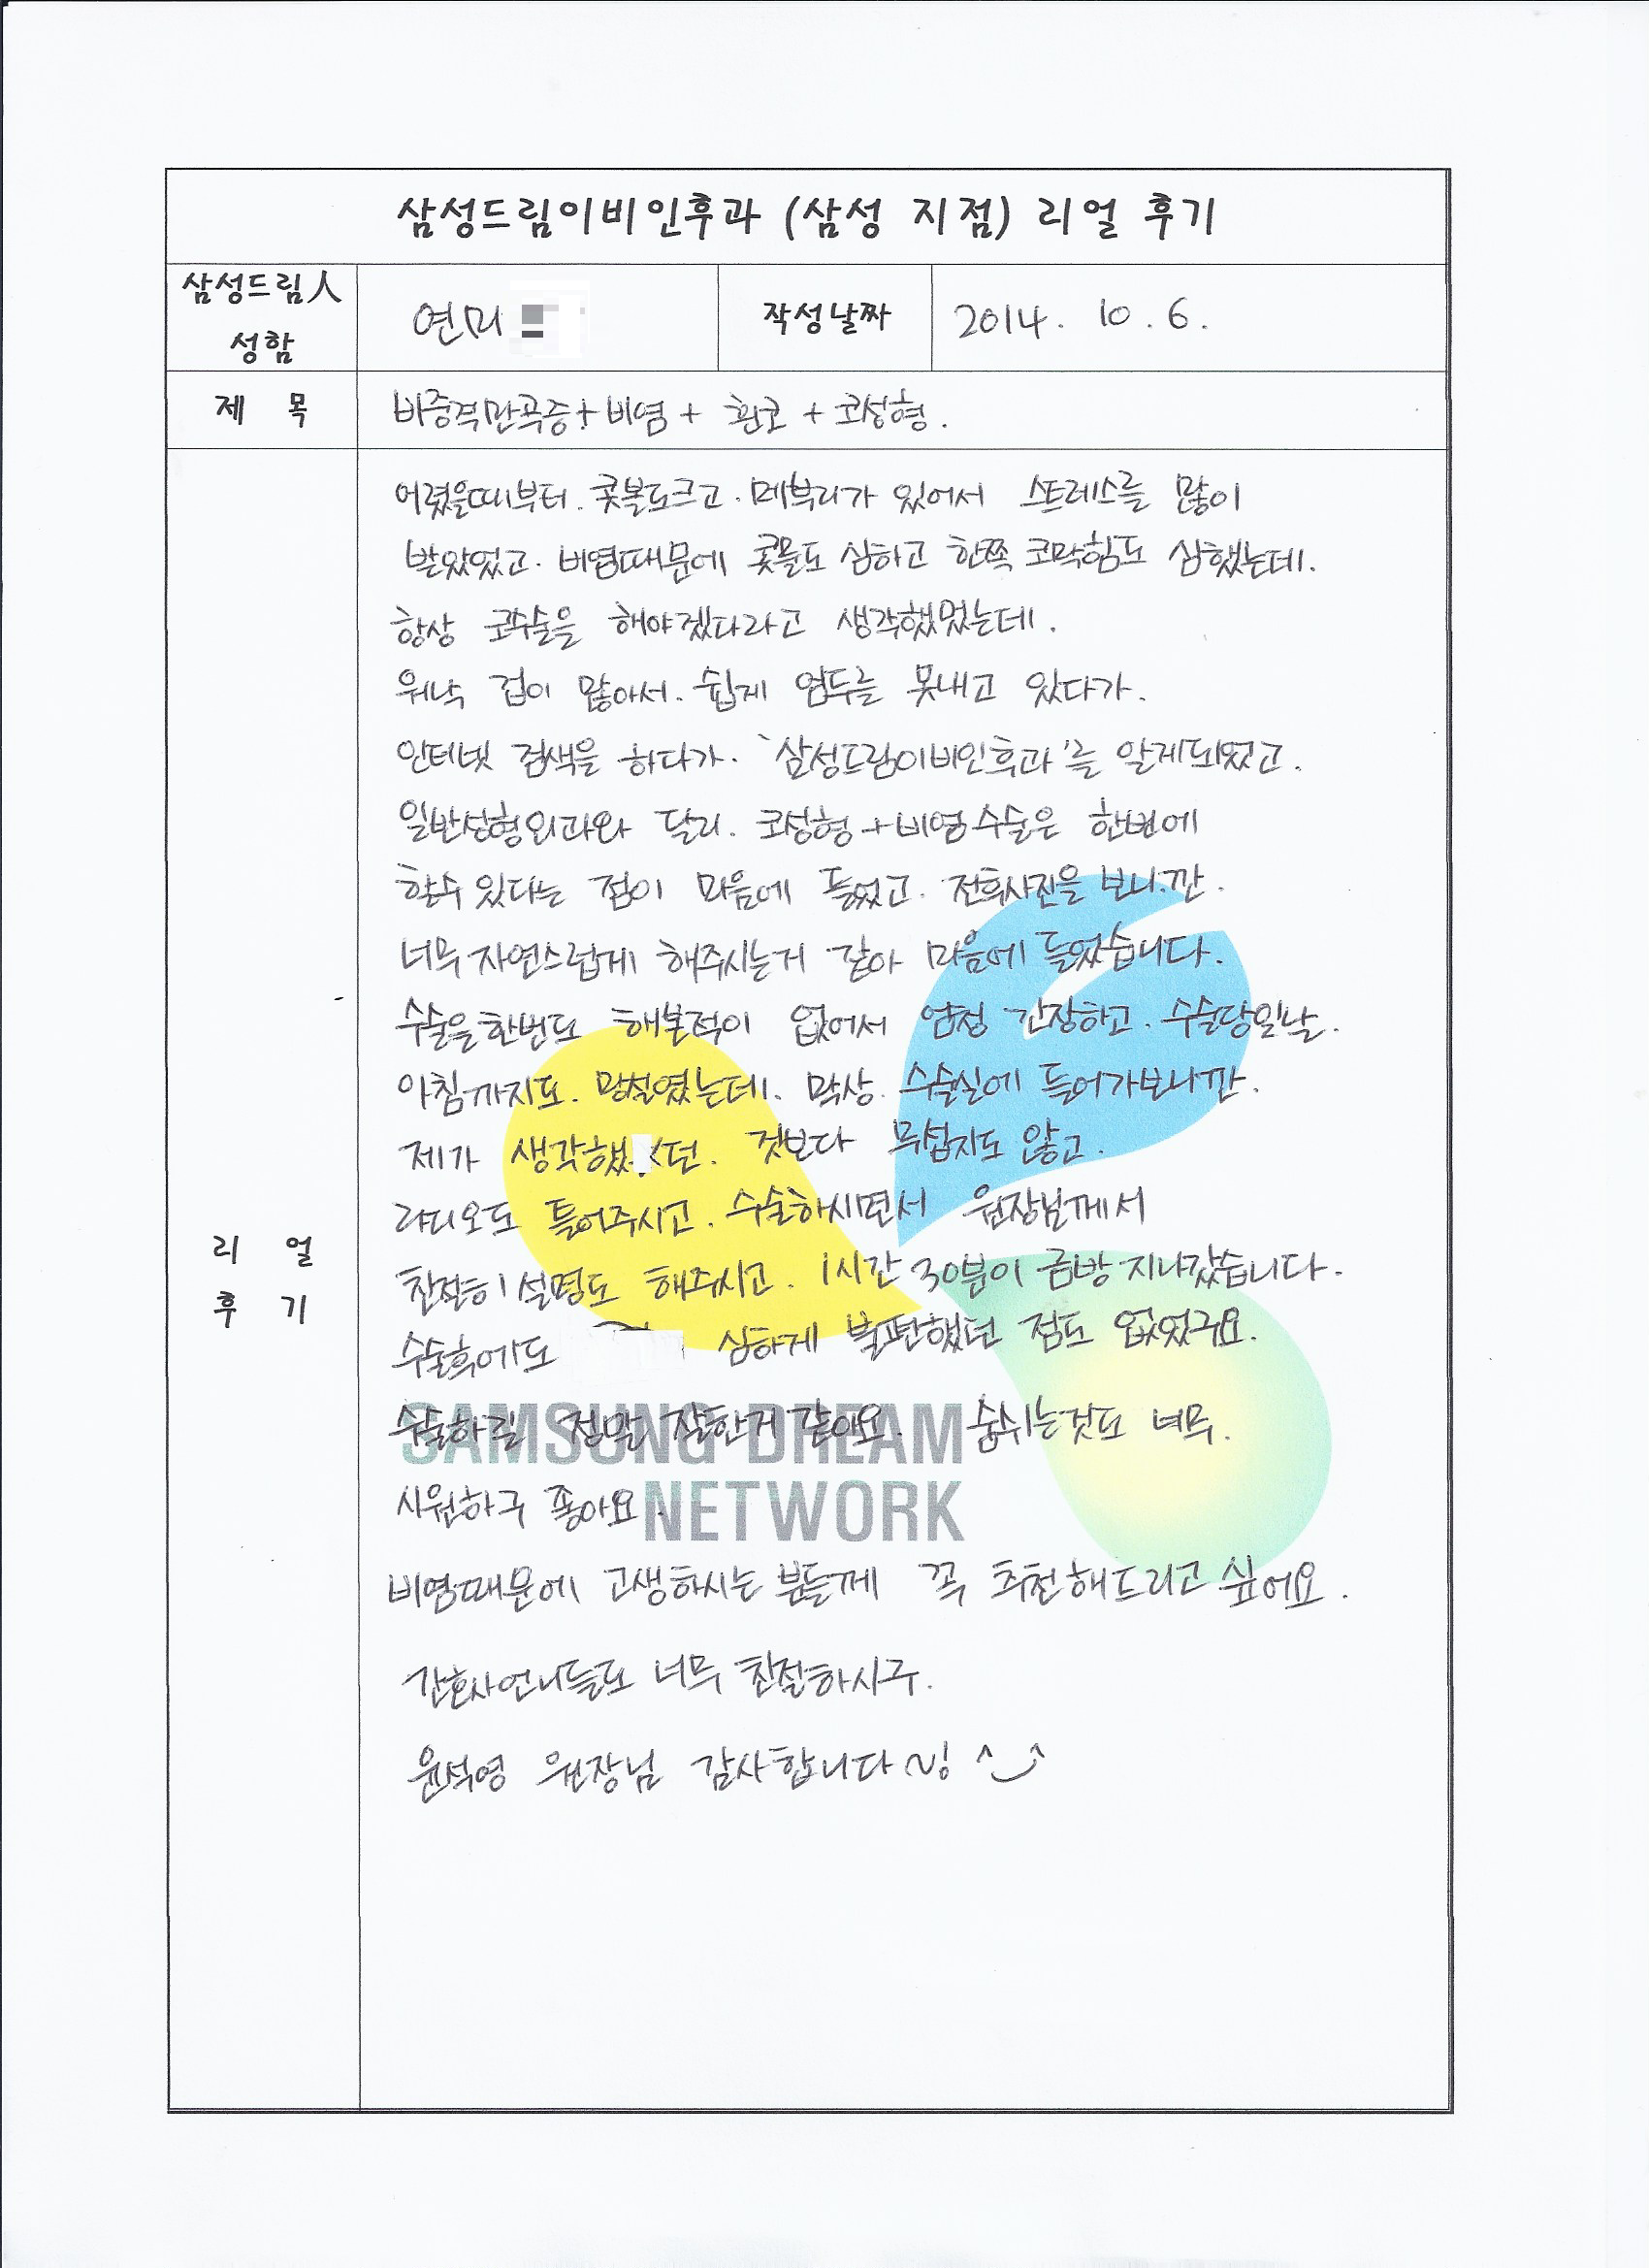 삼성드림이비인후과 (삼성 지점) 리얼 후기
삼성드림人
성함
연미
작성날짜
2014. 10. 6.
제 목
비중격만곡증+비염 + 휜코 + 코성형.
어렸을때부터. 콧볼도크고. 메부리가 있어서 스트레스를 많이
받았었고. 비염때문에 콧물도 심하고 한쪽 코막힘도 심했는데.
항상 코수술을 해야겠다라고 생각했었는데.
워낙 겁이 많아서. 쉽게 엄두를 못내고 있다가.
인터넷 검색을 하다가. '삼성드림이비인후과'를 알게되었고.
일반성형외과와 달리. 코성형+비염수술은 한번에
할수있다는 점이 마음에 들었고. 전후사진을 보니깐.
너무 자연스럽게 해주시는거 같아 마음에 들었습니다.
수술을한번도 해본적이 없어서 엄청 긴장하고. 수술당일날.
아침까지도. 망설였는데. 막상. 수술실에 들어가보니깐.
제가 생각했던. 것보다 무섭지도 않고.
라디오도 틀어주시고. 수술하시면서 원장님께서
친절히 설명도 해주시고. 1시간 30분이 금방 지나갔습니다.
수술후에도 심하게 불편했던 점도 없었구요.
수술하길 정말 잘한거 같아요. 숨쉬는것도 너무.
시원하구 좋아요.
비염때문에 고생하시는 분들께 꼭 추천해드리고 싶어요.
간호사언니들도 너무 친절하시구.
윤석영 원장님 감사합니다~! ^‿^
리 얼
후 기
SAMSUNG DREAM
NETWORK